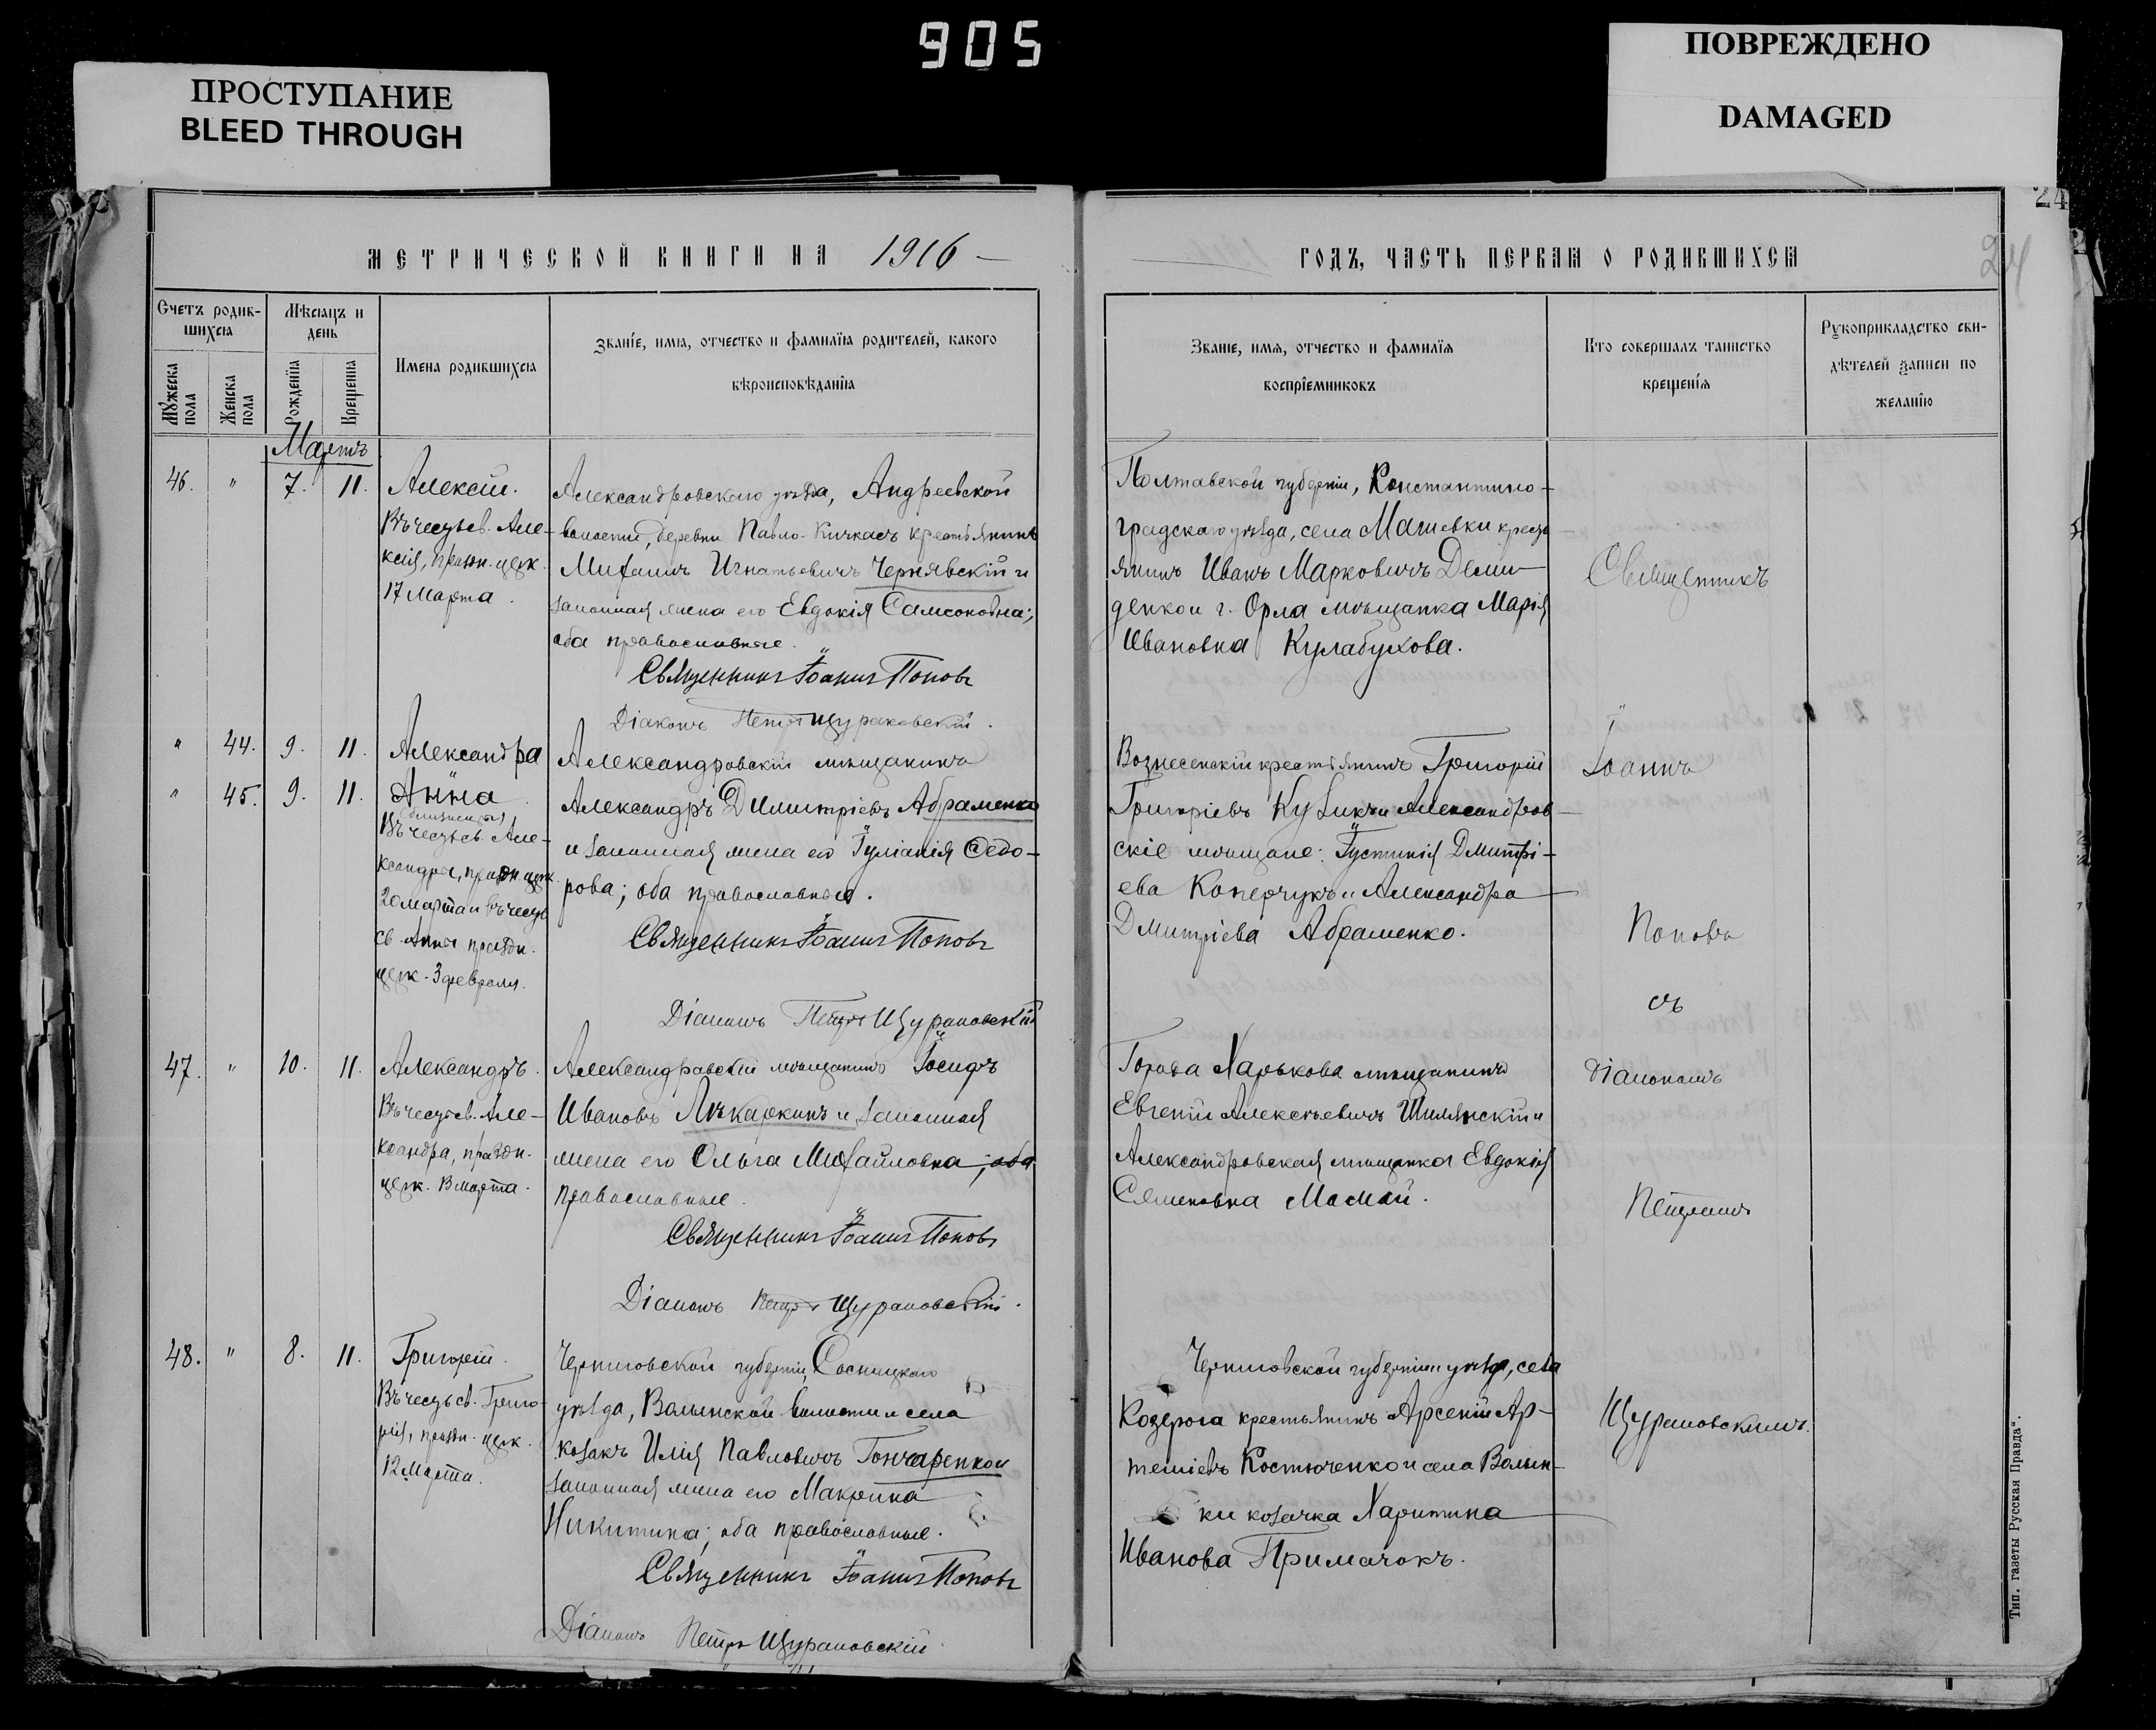 905
ПРОСТУПАНИЕ
BLEED THROUGH
ПОВРЕЖДЕНО
DAMAGED
24
24
МЕТРИЧЕСКОЙ КНИГИ НА 1916
Счетъ родив-
шихся
Мѣсяцъ и
день
Мужеска
пола
Женска
пола
Рожденія
Крещенія
Имена родившихся
Званіе, имя, отчество и фамилія родителей, какого
вѣроисповѣданія
Мартъ
46. " 7. 11. Алексій.
Въ честь св. Але-
ксія, праздн. церк.
17 Марта.
Александровскаго уѣзда, Андреевской
волости, деревни Павло-Кичкасъ крестьянинъ
Михаилъ Игнатьевичъ Чернявскій и
законная жена его Евдокія Самсоновна;
оба православные.
Священникъ Іоаннъ Поповъ
Діаконъ Петръ Щурановскій.
" 44. 9. 11. Александра
" 45. 9. 11. Анна
(близнецы)
Въ честь св. Але-
ксандры, праздн. церк.
20 марта и въ честь
св. Анны праздн.
церк. 3 февраля.
Александровскій мѣщанинъ
Александръ Димитріевъ Абраменко
и законная жена его Іуліанія Ѳедо-
рова; оба православные.
Священникъ Іоаннъ Поповъ
Діаконъ Петръ Щурановскій
47. " 10. 11. Александръ.
Въ честь св. Але-
ксандра, праздн.
церк. 13 марта.
Александровскій мѣщанинъ Іосифъ
Ивановъ Лѣкаркинъ и законная
жена его Ольга Михайловна; оба
православные.
Священникъ Іоаннъ Поповъ
Діаконъ Петръ Щурановскій.
48. " 8. 11. Григорій.
Въ честь св. Григо-
рія, праздн. церк.
12 Марта.
Черниговской губерніи, Сосницкаго
уѣзда, Волынской волости и села
козакъ Илія Павловичъ Гончаренко и
законная жена его Макрина
Никитина; оба православные.
Священникъ Іоаннъ Поповъ
Діаконъ Петръ Щурановскій
ГОДЪ, ЧАСТЬ ПЕРВАЯ О РОДИВШИХСЯ
Званіе, имя, отчество и фамилія
воспріемниковъ
Кто совершалъ таинство
крещенія
Рукоприкладство сви-
дѣтелей записи по
желанію
Полтавской губерніи, Константино-
градскаго уѣзда, села Машевки кресть
янинъ Иванъ Марковичъ Деми-
денко и г. Орла мѣщанка Марія
Ивановна Кулабухова.
Вознесенскій крестьянинъ Григорій
Григоріевъ Кузикъ и Александров-
скіе мѣщане: Іустинія Дмитрі-
ева Коперчукъ и Александра
Дмитріева Абраменко.
Города Харькова мѣщанинъ
Евгеній Алексѣевичъ Шилянскій и
Александровская мѣщанка Евдокія
Семеновна Мамай.
Черниговской губерніи и уѣзда, села
Козерога крестьянинъ Арсеній Ар-
теміевъ Костюченко и села Волын-
ки козачка Харитина
Иванова Примачокъ.
Священникъ
Іоаннъ
Поповъ
съ
діакономъ
Петромъ
Щурановскимъ.
Тип. газеты Русская Правда".